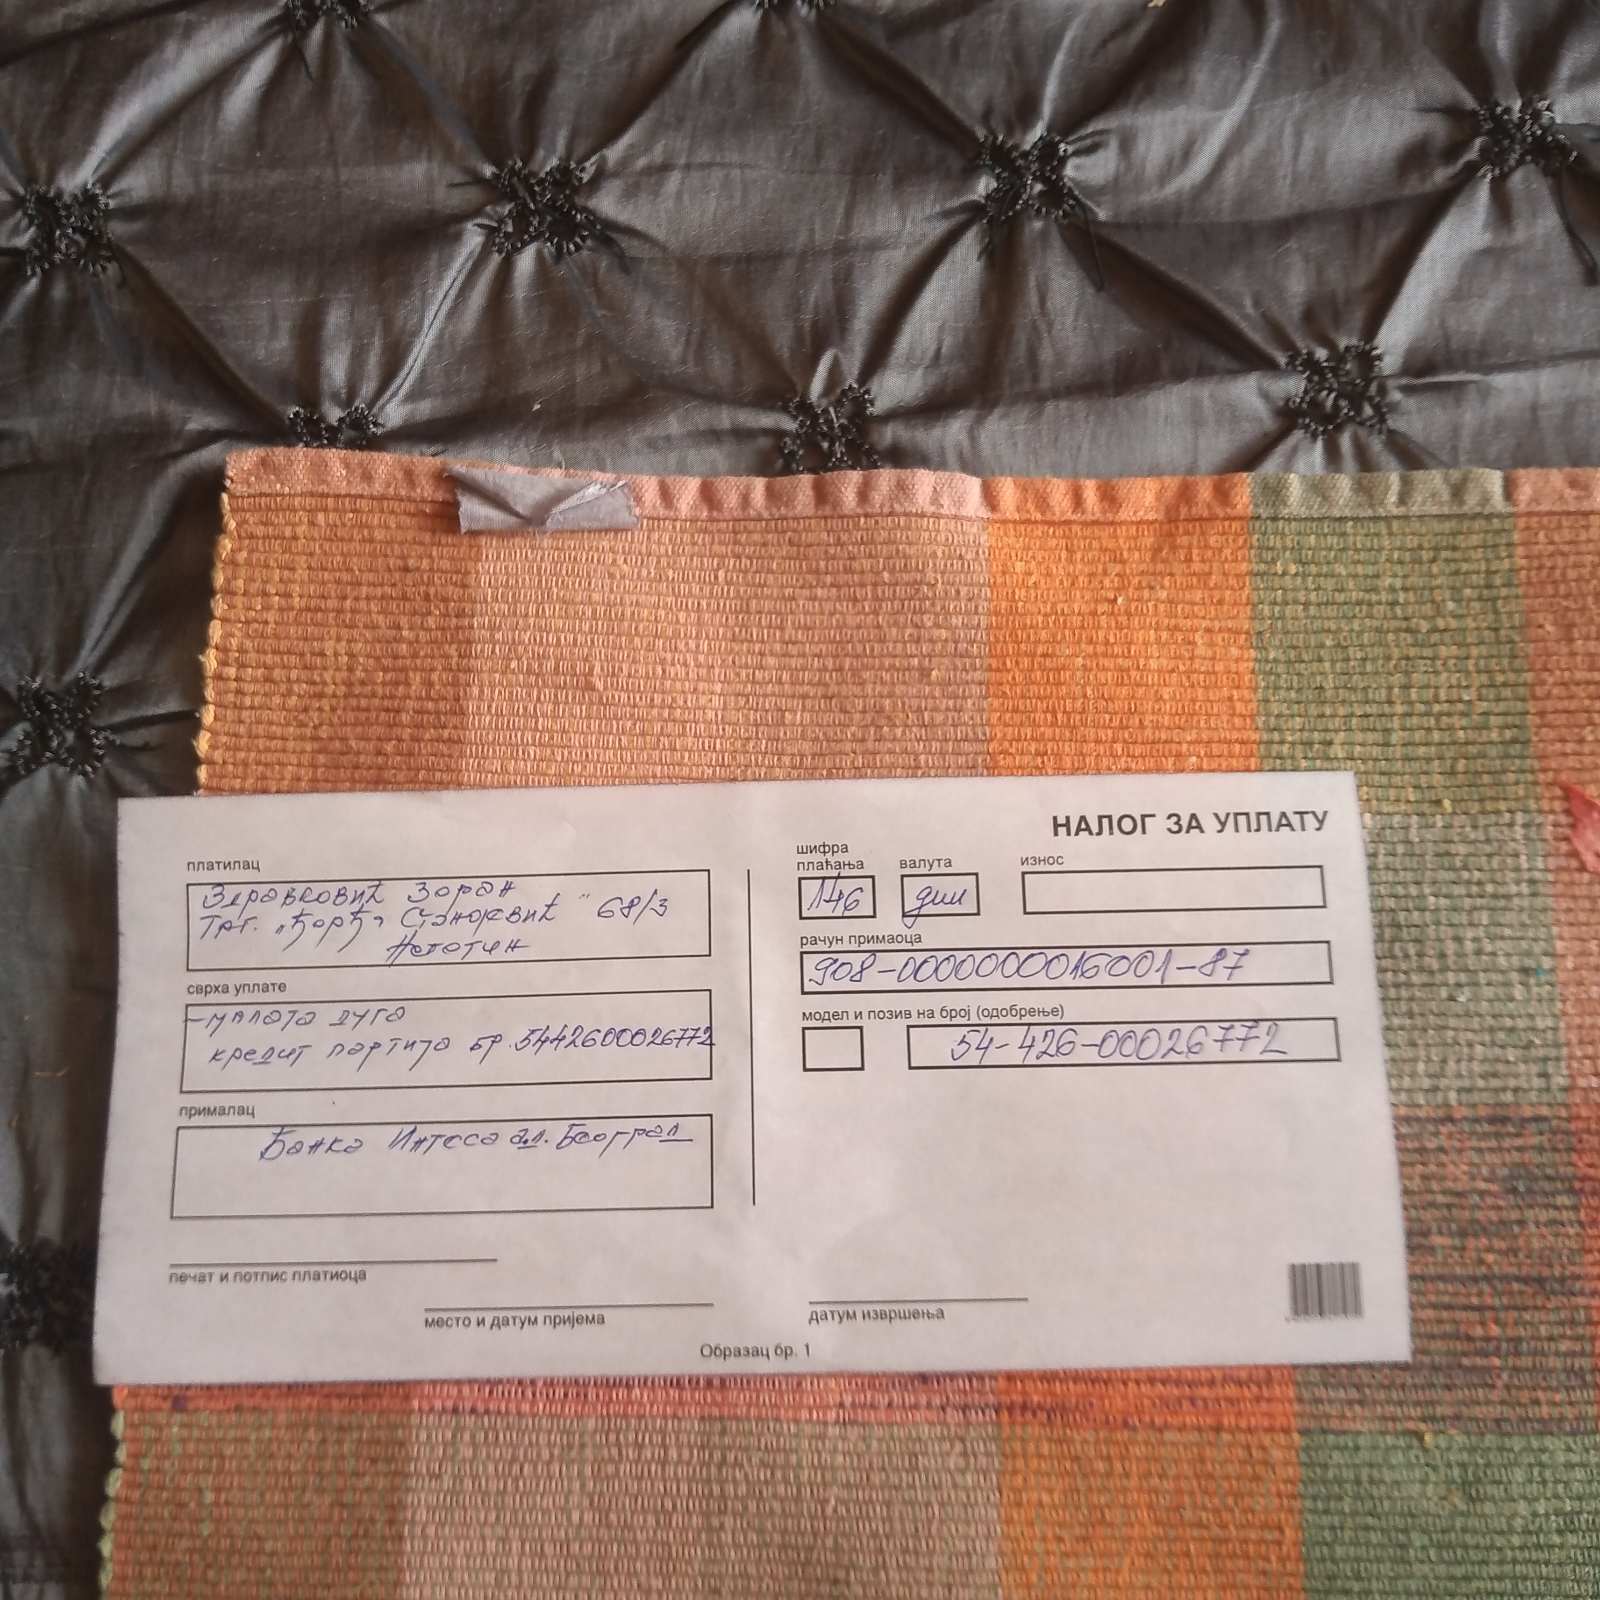 НАЛОГ ЗА УПЛАТУ
платилац
Здравковић Зоран
Трг. „Ђорђа Станојевић" 68/3
Неготин
сврха уплате
-уплата дуга
кредит партија бр. 5442600026772
прималац
Банка Интеса ад. Београд
печат и потпис платиоца
место и датум пријема
шифра
плаћања
валута
износ
146
дин
рачун примаоца
908-0000000016001-87
модел и позив на број (одобрење)
54-426-00026772
датум извршења
Образац бр. 1